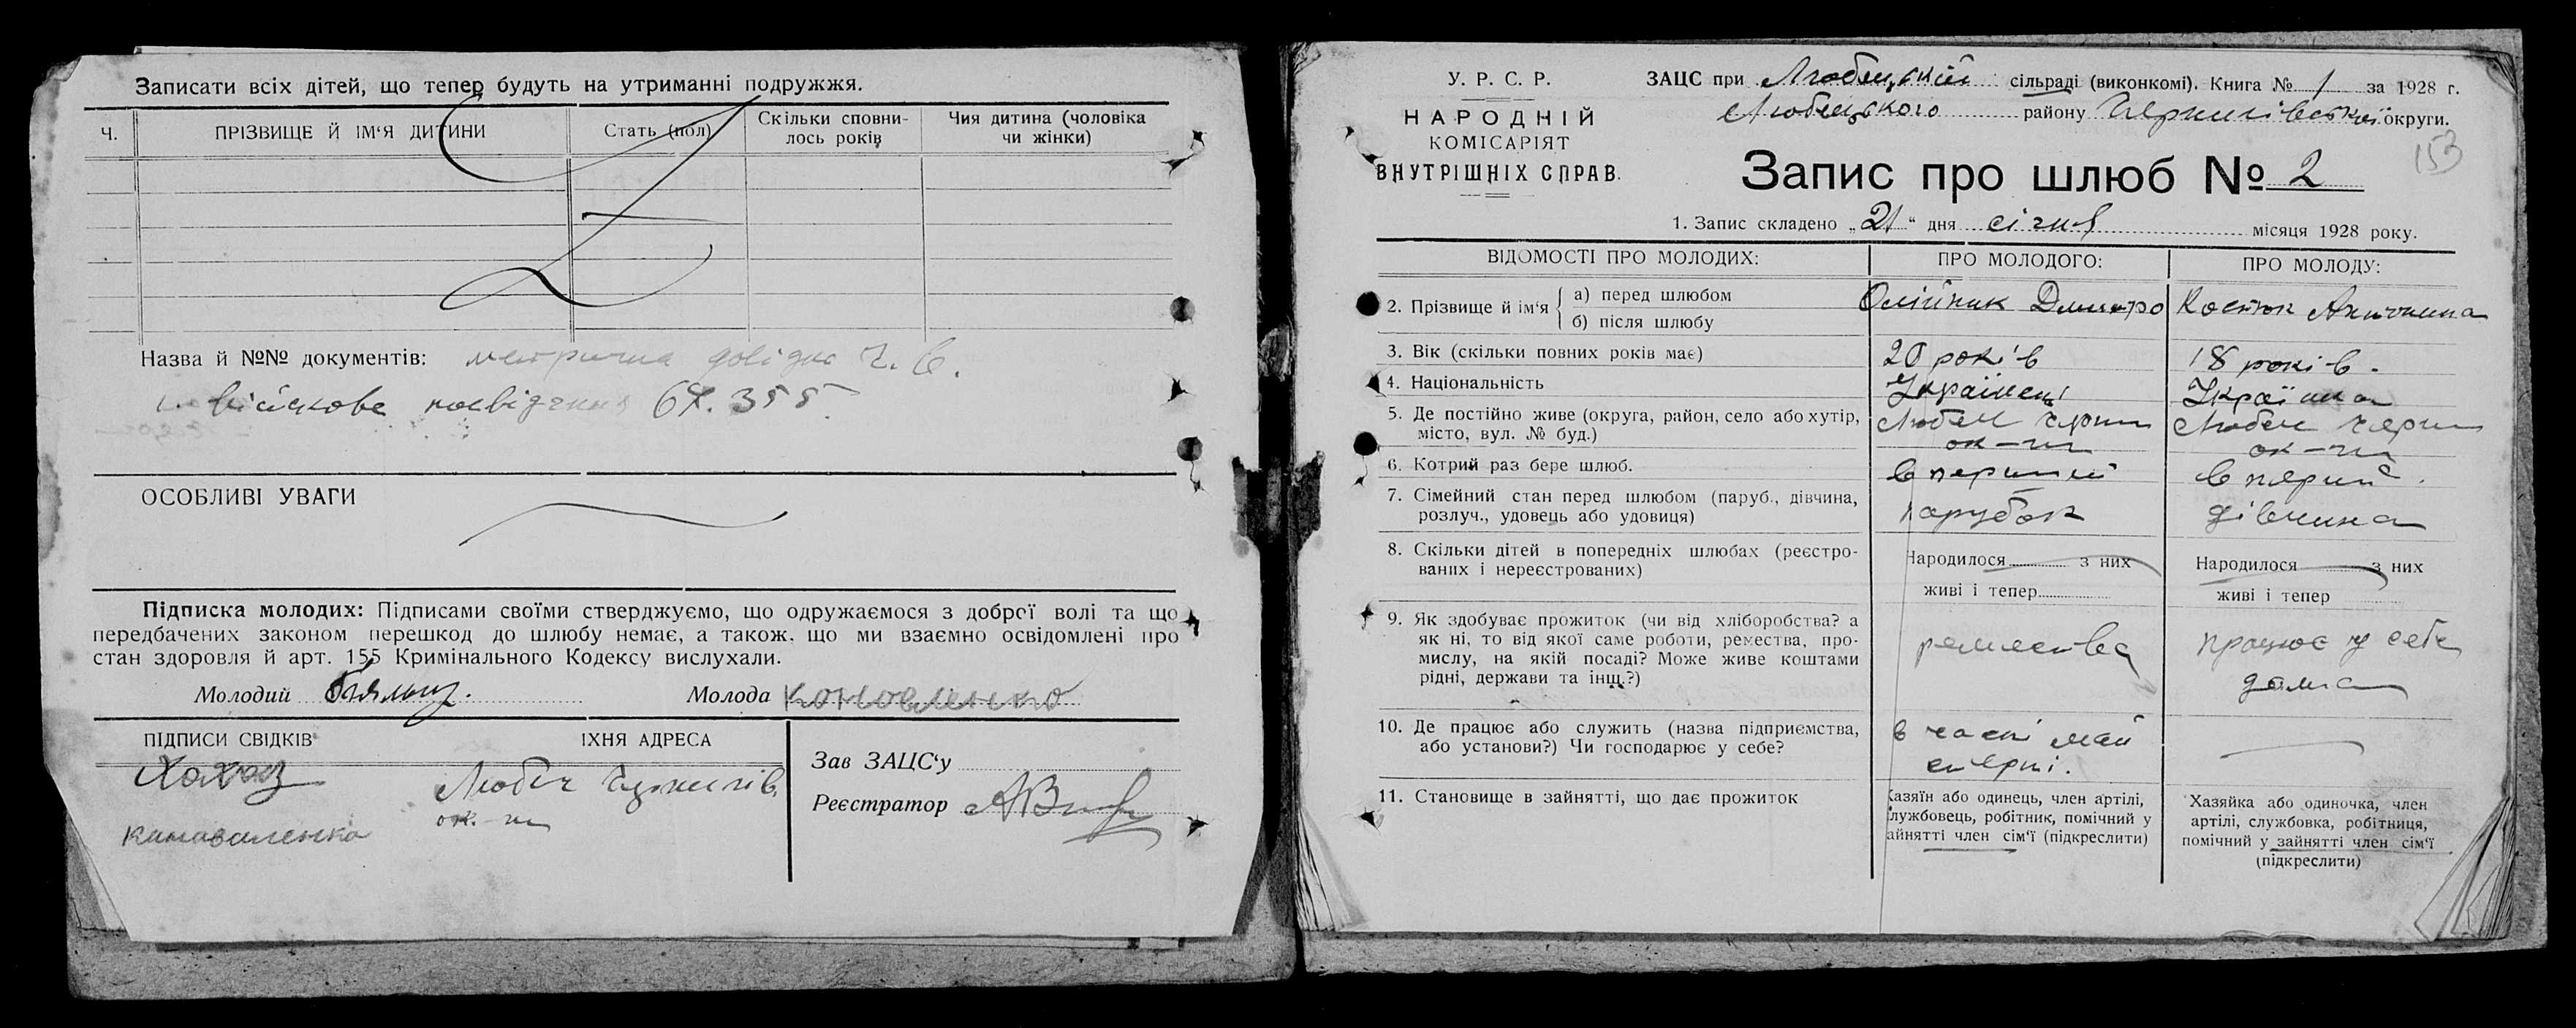 Записати всіх дітей, що тепер будуть на утриманні подружжя.
Ч.
ПРІЗВИЩЕ Й ІМ'Я ДИТИНИ
Стать (пол)
Скільки сповни-
лось років
Чия дитина (чоловіка
чи жінки)
Назва й №№ документів: метрична довідка
військове посвідчення
ОСОБЛИВІ УВАГИ
Підписка молодих: Підписами своїми стверджуємо, що одружаємося з доброї волі та що
передбачених законом перешкод до шлюбу немає, а також, що ми взаємно освідомлені про
стан здоровля й арт. 155 Кримінального Кодексу вислухали.
Молодий
Молода коноваленко
ПІДПИСИ СВІДКІВ
ІХНЯ АДРЕСА
Любеч
ок-ги
канаваленко
Зав ЗАЦС'у
Реєстратор
У. Р. С. Р.
НАРОДНІЙ
КОМІСАРІЯТ
ВНУТРІШНІХ СПРАВ.
ЗАЦС при Любецькій сільраді (виконкомі). Книга № 1 за 1928 г.
Любецького району Чернигівської округи.
153
Запис про шлюб № 2
1. Запис складено „21“ дня січня місяця 1928 року.
ВІДОМОСТІ ПРО МОЛОДИХ:
ПРО МОЛОДОГО:
ПРО МОЛОДУ:
2. Прізвище й ім'я
а) перед шлюбом
б) після шлюбу
Олійник Дмитро
Костюк Антонина
3. Вік (скільки повних років має)
20 років
18 років.
4. Національність
Українець
Українка
5. Де постійно живе (округа, район, село або хутір,
місто, вул. № буд.)
Любеч Черни
ок-ги
Любеч Черни
ок-ги
6. Котрий раз бере шлюб.
в перший
в перший
7. Сімейний стан перед шлюбом (паруб., дівчина,
розлуч., удовець або удовиця)
парубок
дівчина
8. Скільки дітей в попередніх шлюбах (реєстро-
ваних і нереєстрованих)
Народилося з них
живі і тепер
Народилося з них
живі і тепер
9. Як здобуває прожиток (чи від хліборобства? а
як ні, то від якої саме роботи, ремества, про-
мислу, на якій посаді? Може живе коштами
рідні, держави та інш.?)
ремества
працює у себе
дома
10. Де працює або служить (назва підприємства,
або установи?) Чи господарює у себе?
в часні май
стерні.
11. Становище в зайнятті, що дає прожиток
Хазяїн або одинець, член артілі,
службовець, робітник, помічний у
зайнятті член сім'ї (підкреслити)
Хазяйка або одиночка, член
артілі, службовка, робітниця,
помічний у зайнятті член сім'ї
(підкреслити)